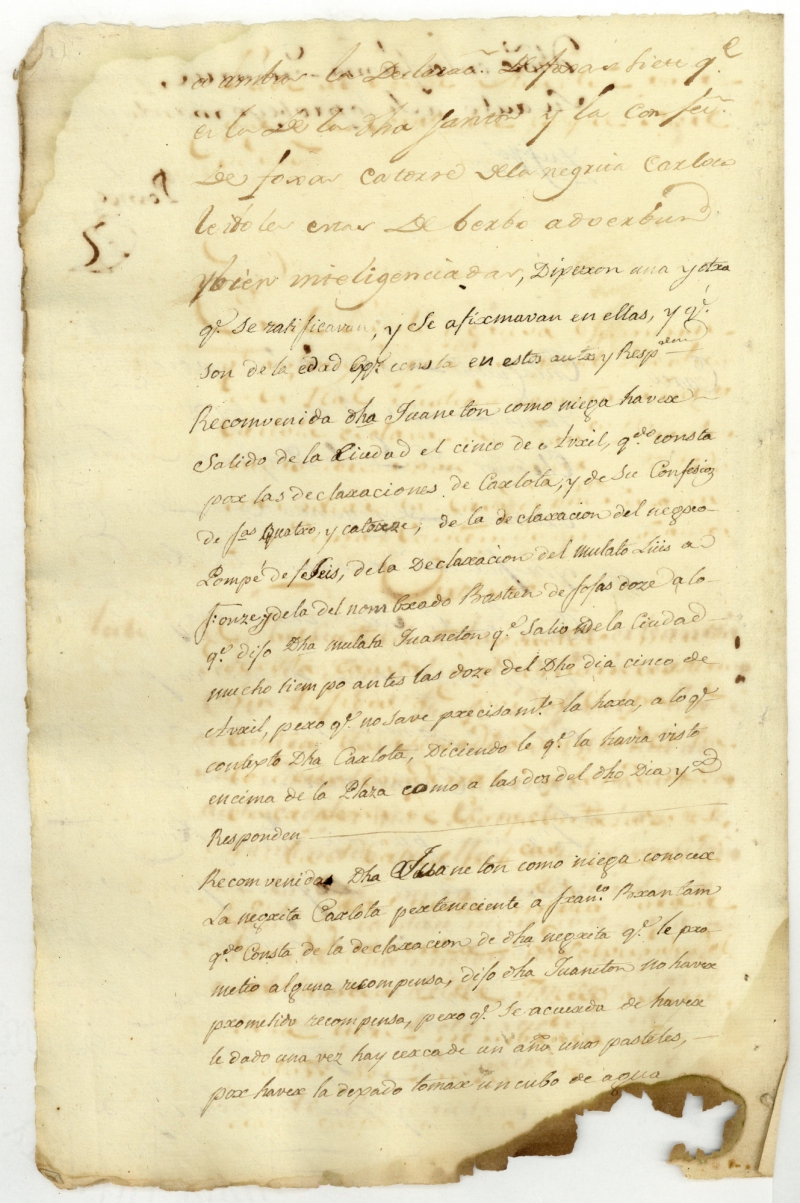 a ambas la Declaraon. De foxas siete q.e
es la De la dha Juane y la Confeon.
De foxas catorze dela negrita Carlota
leidoles estas De berbo adverbun
y bien inteligenciadas, Dixeron una y otra
q.e se ratificavan, y Se afirmavan en ellas, y q.e
son de la edad q.e consta en estos autos y Respden
Recomvenida dha Juaneton como niega haver
Salido de la Ciudad el cinco de Avril, q.do consta
por las declaraciones de Carlota, y de Su Confesion
de fas quatro, y catorze, de la declaracion del negro
Pompé de f. Seis, de la Declaracion del mulato Luis a
f. onze, y dela del nombrado Bastien de fofas doze a lo
q.e dijo Dha mulata Juaneton q.e Salio de la Ciudad
mucho tiempo antes las doze del Dho dia cinco de
Avril, pero q.e no save precisam.te la hora, a lo q.e
contexto Dha Carlota, Diciendo le q.e la havia visto
encima de la Plaza como a las dos del dho Dia y
Responden
Recomvenida Dha Juaneton como niega conocer
La negrita Carlota perteneciente a Fran.co Brantam
q.do Consta de la declaracion de dha negrita q.e le pro-
metio alguna recompensa, dijo dha Juaneton no haver
prometido recompensa, pero q.e Se acuerda de haver
le dado una vez hay cerca de un año unos pasteles,
por haver la dexado tomar un cubo de agua